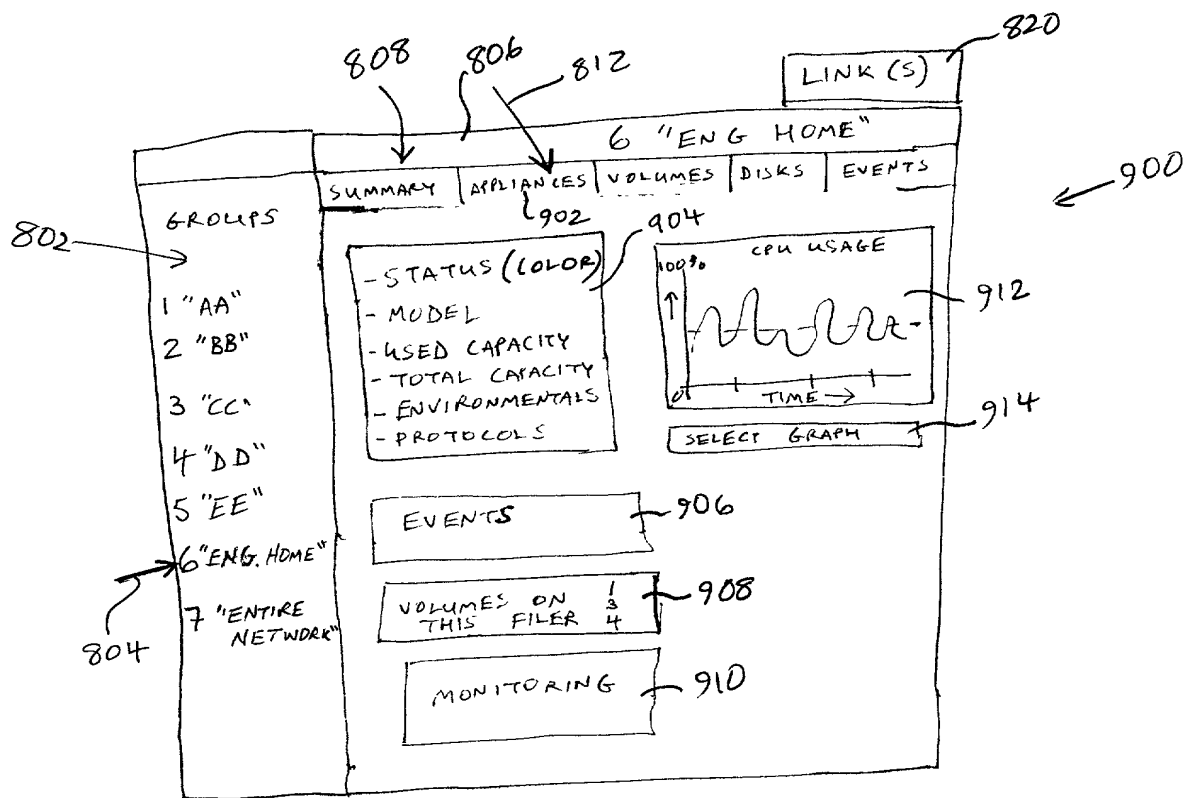 820
LINK (S)
808
806
812
6 "ENG HOME"
SUMMARY APPLIANCES VOLUMES DISKS EVENTS
900
902
GROUPS
802
1 "AA"
2 "BB"
3 "CC"
4 "DD"
5 "EE"
6 "ENG. HOME"
7 "ENTIRE
NETWORK"
804
904
- STATUS (COLOR)
- MODEL
- USED CAPACITY
- TOTAL CAPACITY
- ENVIRONMENTALS
- PROTOCOLS
CPU USAGE
100%
0
TIME →
912
SELECT GRAPH
914
EVENTS
906
VOLUMES ON 1
3
THIS FILER 4
908
MONITORING
910